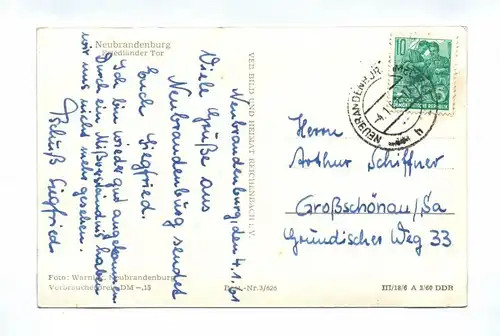 Neubrandenburg
Friedländer Tor
Neubrandenburg, den 4.1.61
Viele Grüße aus
Neubrandenburg sendet
Euch Siegfried.
Ich bin wieder gut angekommen
Durch ein Mißverständnis haben
wir uns nicht mehr gesehen.
Tschüß Siegfried
VEB BILD UND HEIMAT REICHENBACH I. V.
10
NEUBRANDENBURG
Herrn
Arthur Schiffner
Großschönau/Sa
Gründischer Weg 33
Foto: Neubrandenburg
Verbraucherpreis DM -,15
Best.-Nr. 3/625
III/18/6 A 3/60 DDR